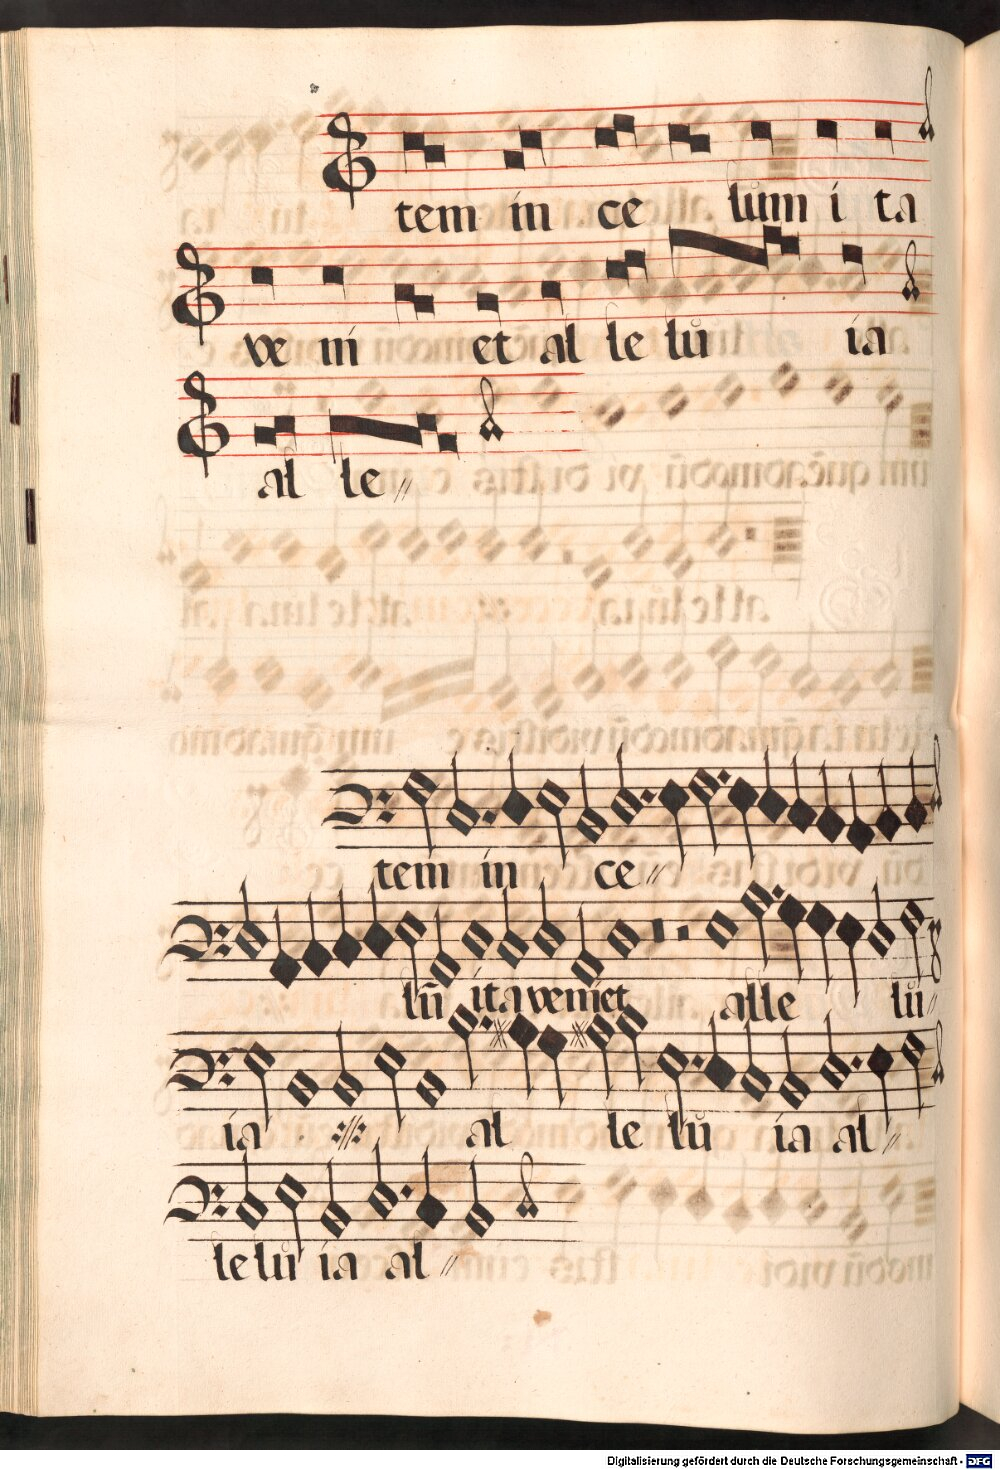 tem in ce lum i ta
ve ni et al le lu ia
al le
tem in ce
lū ita veniet alle lu
ia al le lu ia al
le lu ia al
Digitalisierung gefördert durch die Deutsche Forschungsgemeinschaft - DFG